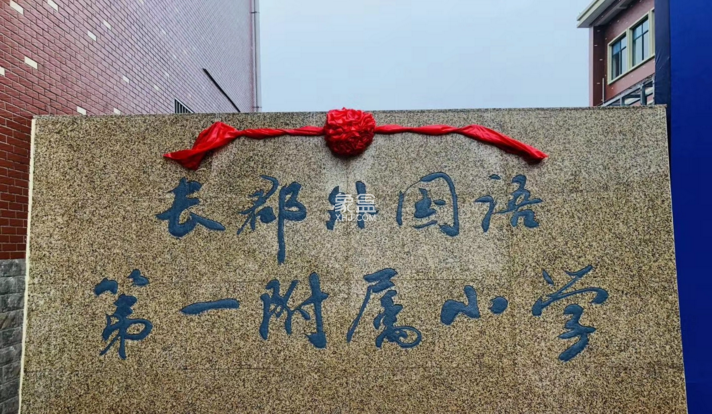 长郡外国语
象盒
XHJ.COM
第一附属小学